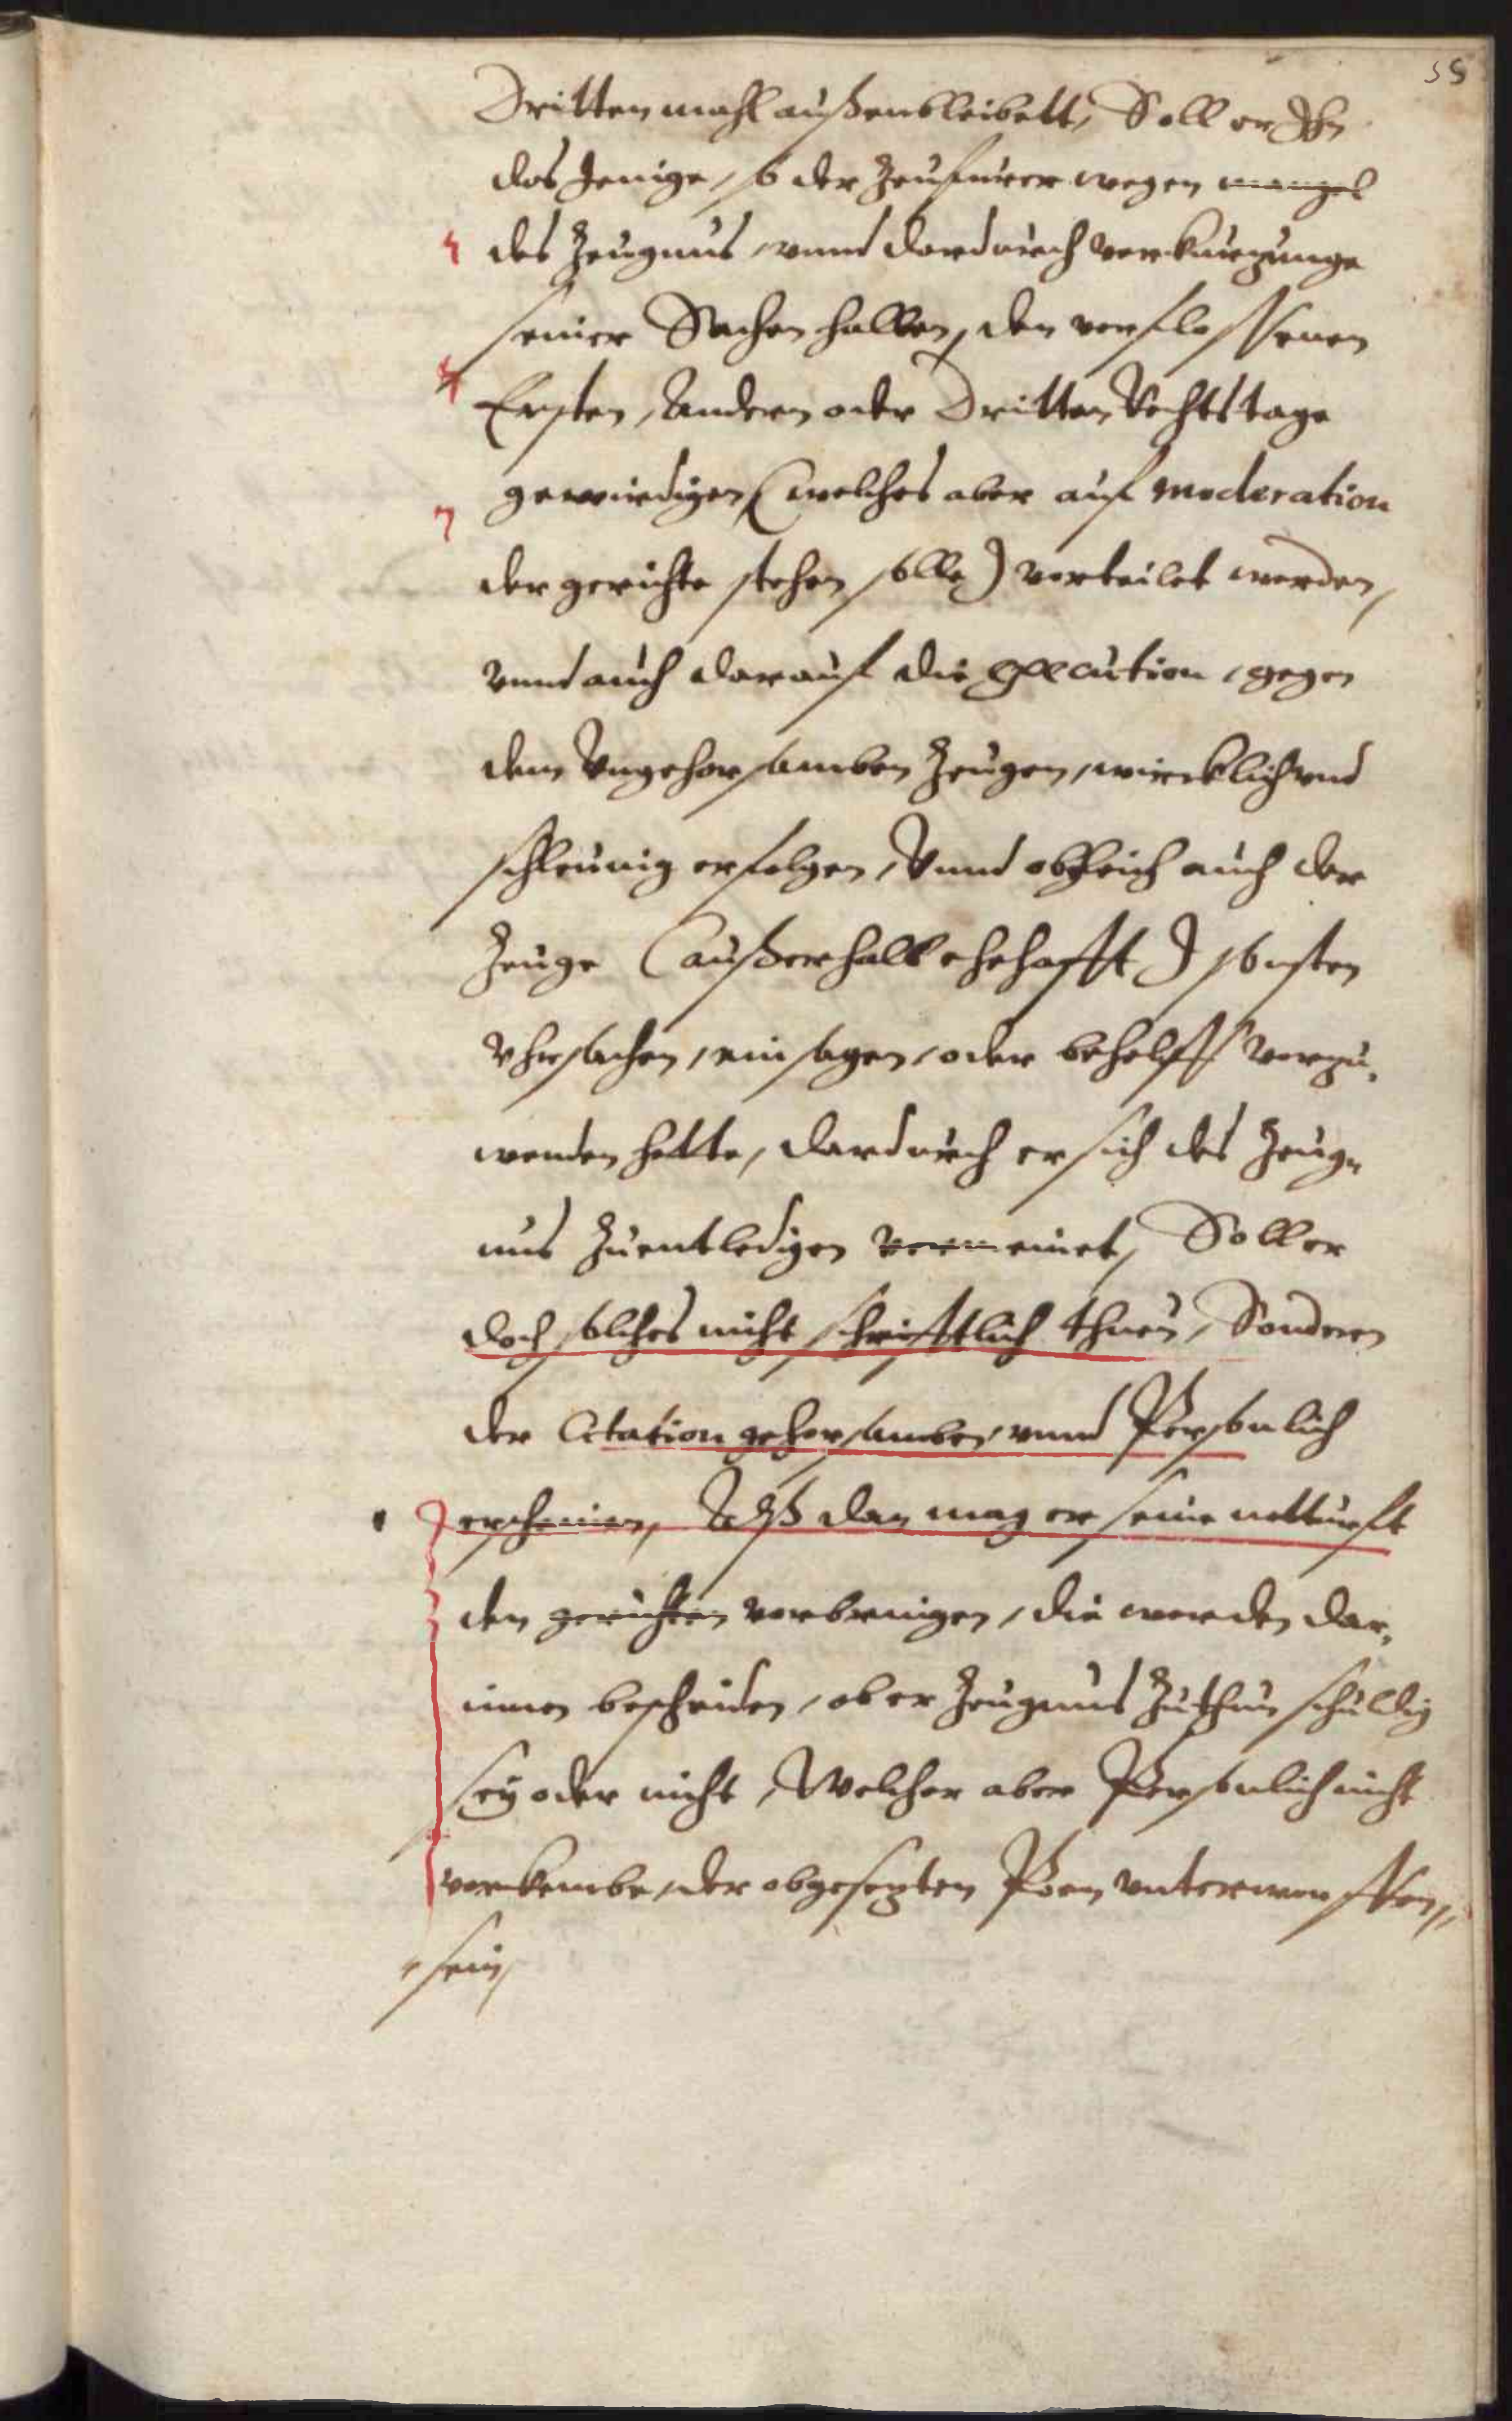 55
Dritten mahl außenbleibett, Soll er Ihn
das Jenige, so der Zeufürer wegen mangel
des Zeugnus, vnnd dardurch verkurzunge
seiner Sachen halben, den verflossenen
Ersten, Andern oder Dritten Rechtstage
gewirdigen (welches aber auf moderation
der gerichte stehen solle) verteilet werden,
vnnd auch darauf die Execution, gegen
dem Vngehorsamben Zeugen, wirrcklich vnd
schleunig erfolgen, Vnnd obgleich auch der
Zeuge (außerhalb ehehafft) sonsten
Vhrsachen, einsagen, oder behelff vorzu,
wenden hette, dardurch er sich des Zeug,
nus Zuentledigen vermeinet, Soll er
doch solches nicht schrifftlich thuen, Sonderen
der Citation gehorsamben, vnnd Persönlich
erscheinen, Alß dan mag er seine notturft
den gerichten vorbrengen, die werden dar,
innen bescheiden, ob er Zeugnus Zuthun schuldig
sey oder nicht, Welcher aber Persönlich nicht
vorkembe, der obgesezten Poen vnterworffen
sein,